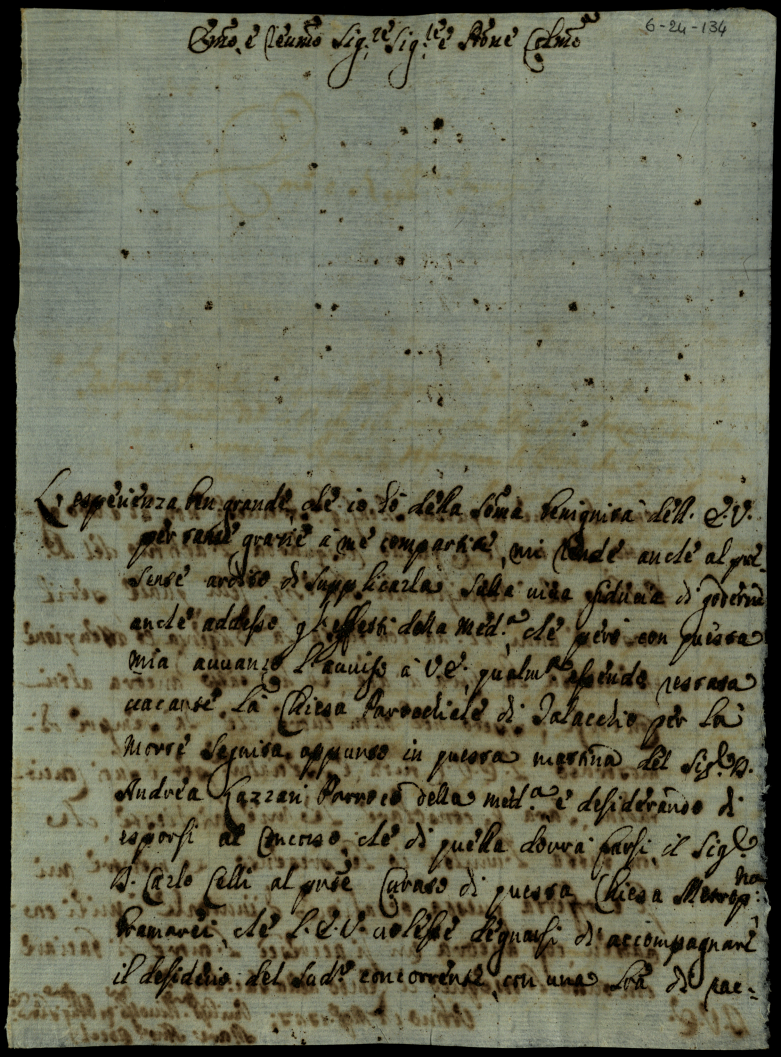 6-24-134
Emo, e Reumo Sig.re Sig.re e Pròne Colmo
L'esperienza ben grande, che io hò della Soma benignità dell'E.V.
per tante grazie a me compartite, mi rende anche al pre-
sente ardito di supplicarla sulla viva fiducia di godere
anche addesso gl'effetti della med.a, che però con questa
mia avvanzo l'avviso a V.E. qualm.e essendo restata
vacante la Chiesa Parrochiale di Talacchio per la
morte seguita appunto in questa mattina del Sig.r D.
Andrea Lazzari Parroco della med.a e desiderando di
esporsi al Concorso, che di quella dovrà farsi, il Sig.r
D. Carlo Celli al pnte Curato di questa Chiesa Metrop.na
bramarei, che l'E.V. volesse degnarsi di accompagnare
il desiderio del sud.o concorrente, con una lra di rac-